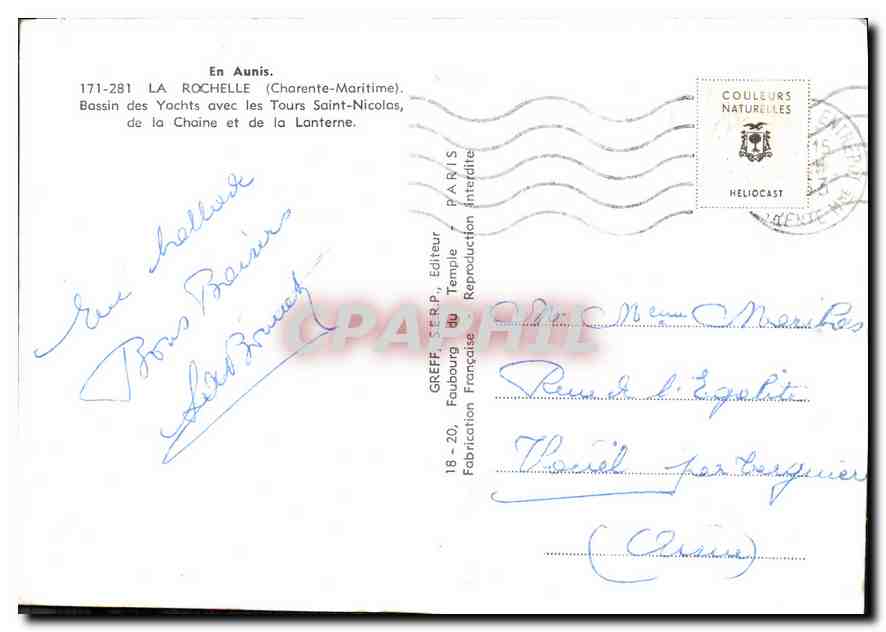 En Aunis.
171-281 LA ROCHELLE (Charente-Maritime).
Bassin des Yachts avec les Tours Saint-Nicolas,
de la Chaîne et de la Lanterne.
COULEURS
NATURELLES
HELIOCAST
15
GREFF, S.E.R.P., Editeur
18-20, Faubourg du Temple - PARIS
Fabrication Française - Reproduction Interdite
En ballade
Bons Baisers
CPAPHIL
Rue de l'Egalité
Vouël par Tergnier
(Aisne)